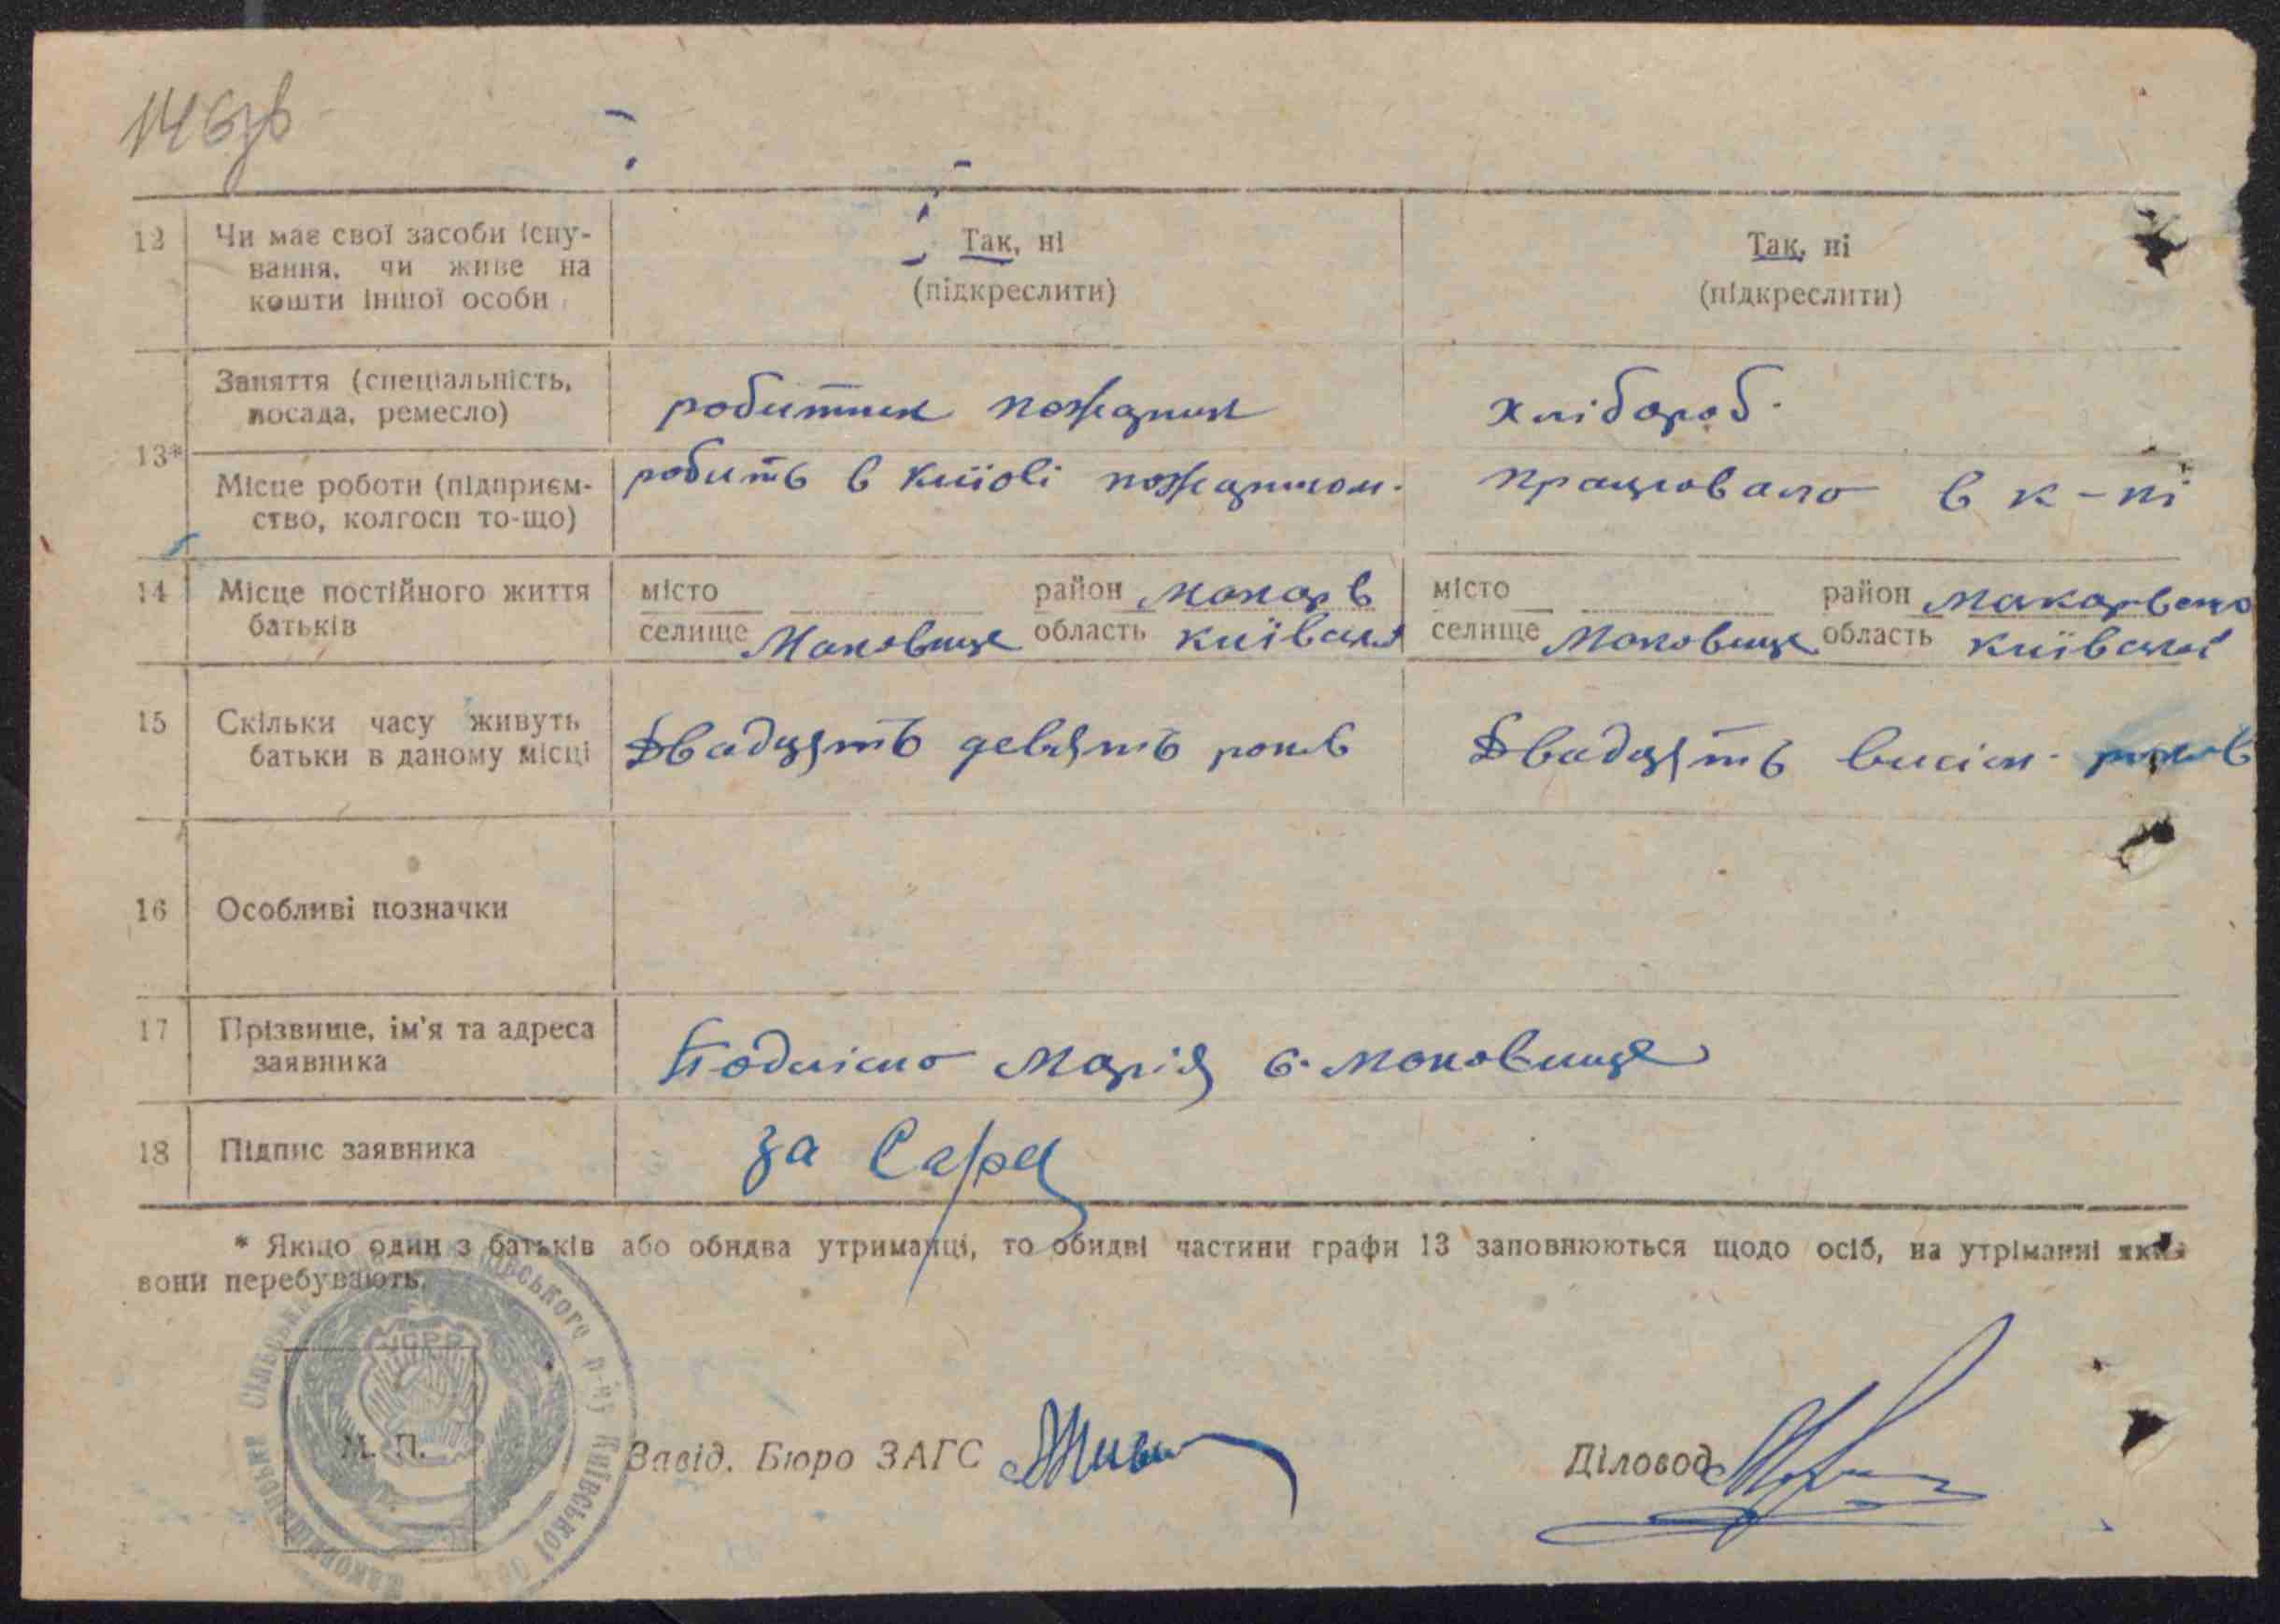 146зв
12 Чи має свої засоби існу-
вання, чи живе на
кошти іншої особи
Так, ні
(підкреслити)
Так, ні
(підкреслити)
13*
Заняття (спеціальність,
посада, ремесло)
робитник пожарник
хлібороб.
Місце роботи (підприєм-
ство, колгосп то-що)
робить в Київі пожарником.
працювало в к-пі
14 Місце постійного життя
батьків
місто район Макарів
селище Маковище область Київська
місто район Макарівсько
селище Маковище область Київської
15 Скільки часу живуть
батьки в даному місці
Двадцять девять років
Двадцять висім років
16 Особливі позначки
17 Прізвище, ім'я та адреса
заявника
Марія с. Маковище
18 Підпис заявника
за
* Якщо один з батьків або обидва утриманці, то обидві частини графи 13 заповнюються щодо осіб, на утріманні яких
вони перебувають.
УСРР
р-ну Київської
М. П.
Завід. Бюро ЗАГС
Діловод